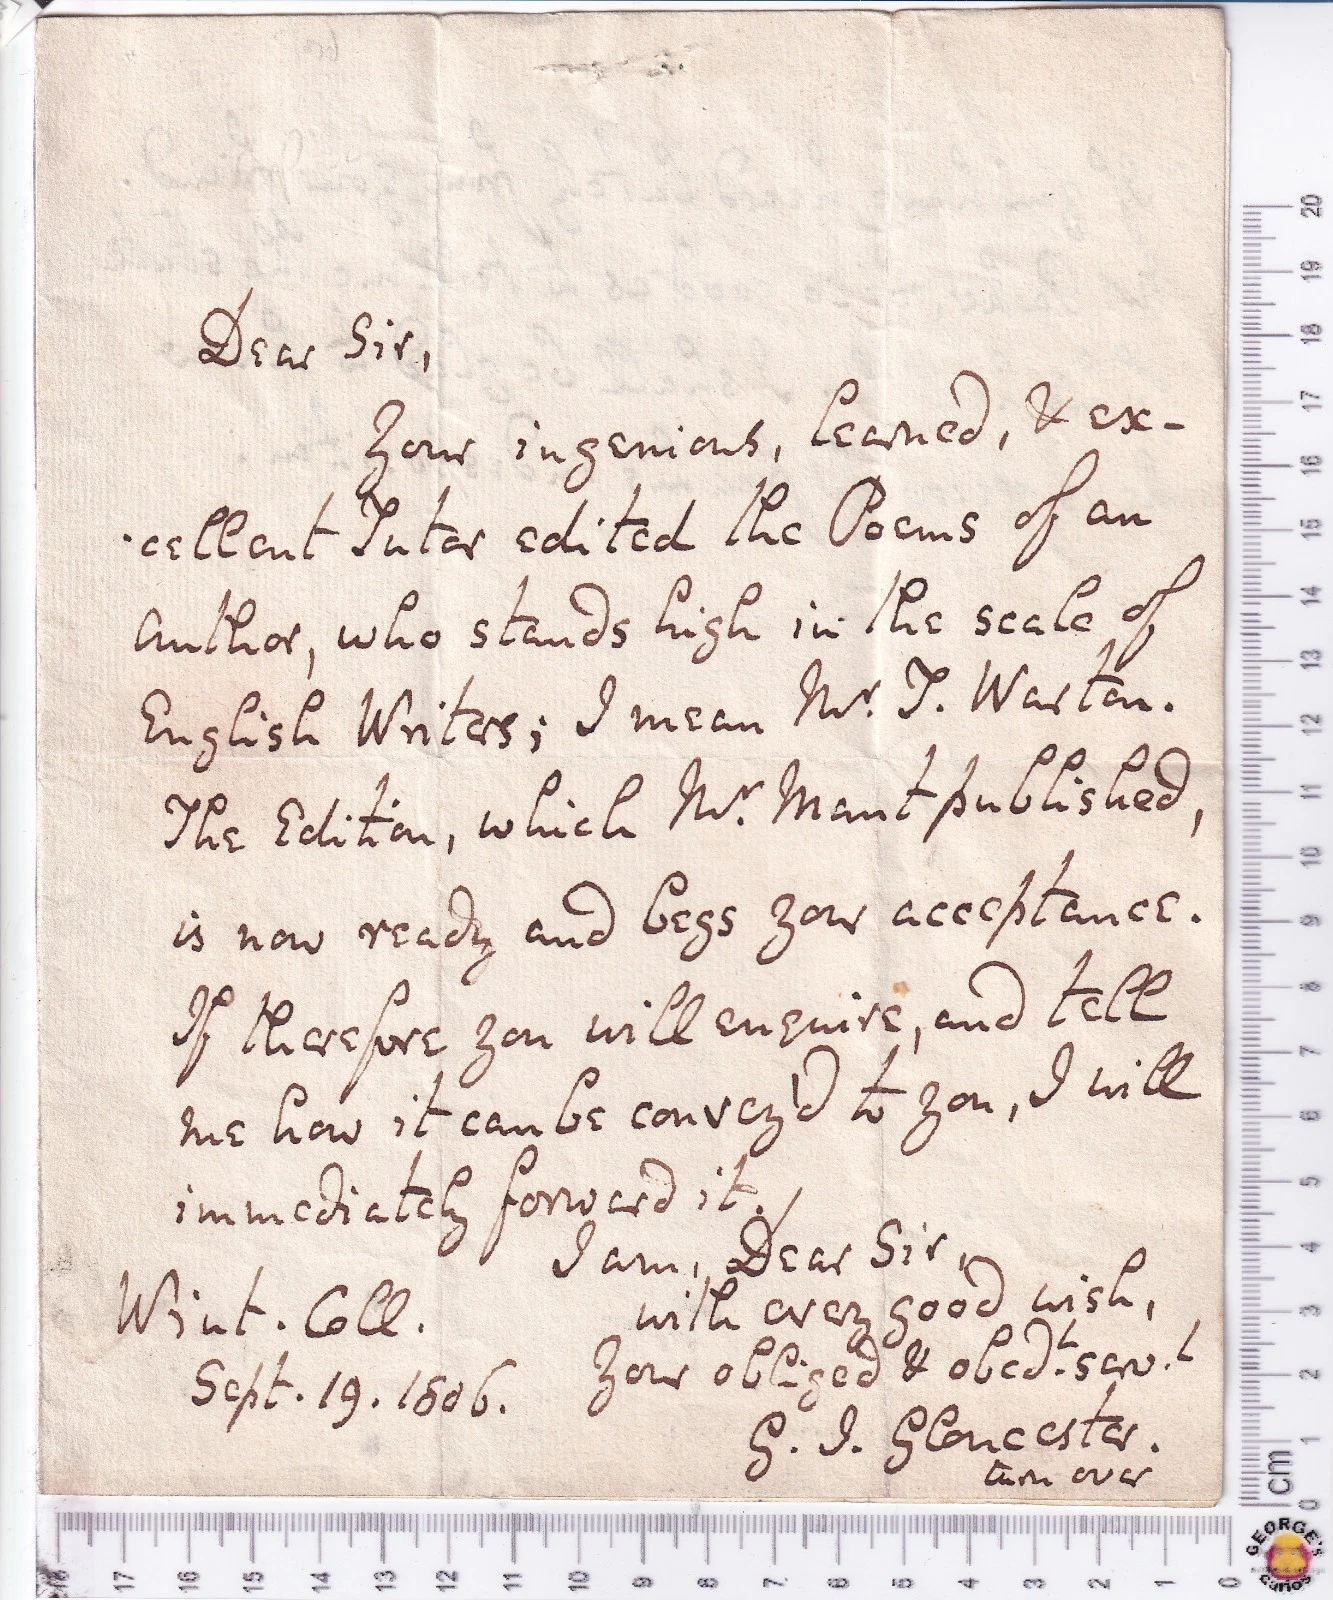 Dear Sir,
Your ingenious, learned, & ex-
cellent Tutor edited the Poems of an
Author, who stands high in the scale of
English Writers; I mean Mr. T. Warton.
The Edition, which Mr. Mant published,
is now ready and begs your acceptance.
If therefore you will enquire, and tell
me how it can be convey'd to you, I will
immediately forward it.
I am, Dear Sir,
with every good wish,
Your obliged & obedt. servt.
G. I. Gloucester.
turn over
Wint. Coll.
Sept. 19. 1806.
20
19
18
17
16
15
14
13
12
11
10
9
8
7
6
5
4
3
2
1
0
cm
18 17 16 15 14 13 12 11 10 9 8 7 6 5 4 3 2 1 0
GEORGE'S
Curios